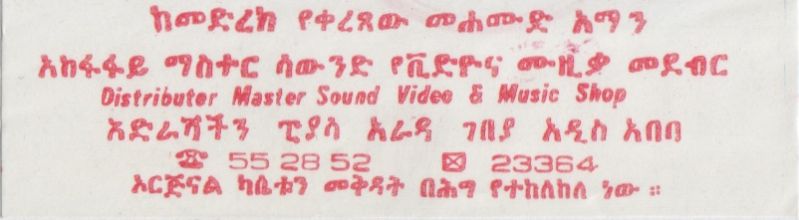 ከመድረክ የቀረጸው መሐሙድ አማን
አከፋፋይ ማስተር ሳውንድ የቪድዮና ሙዚቃ መደብር
Distributer Master Sound Video & Music Shop
አድራሻችን ፒያሳ አራዳ ገበያ አዲስ አበባ
☎ 55 28 52 ✉ 23364
ኦርጅናል ካሴቱን መቅዳት በሕግ የተከለከለ ነው ።